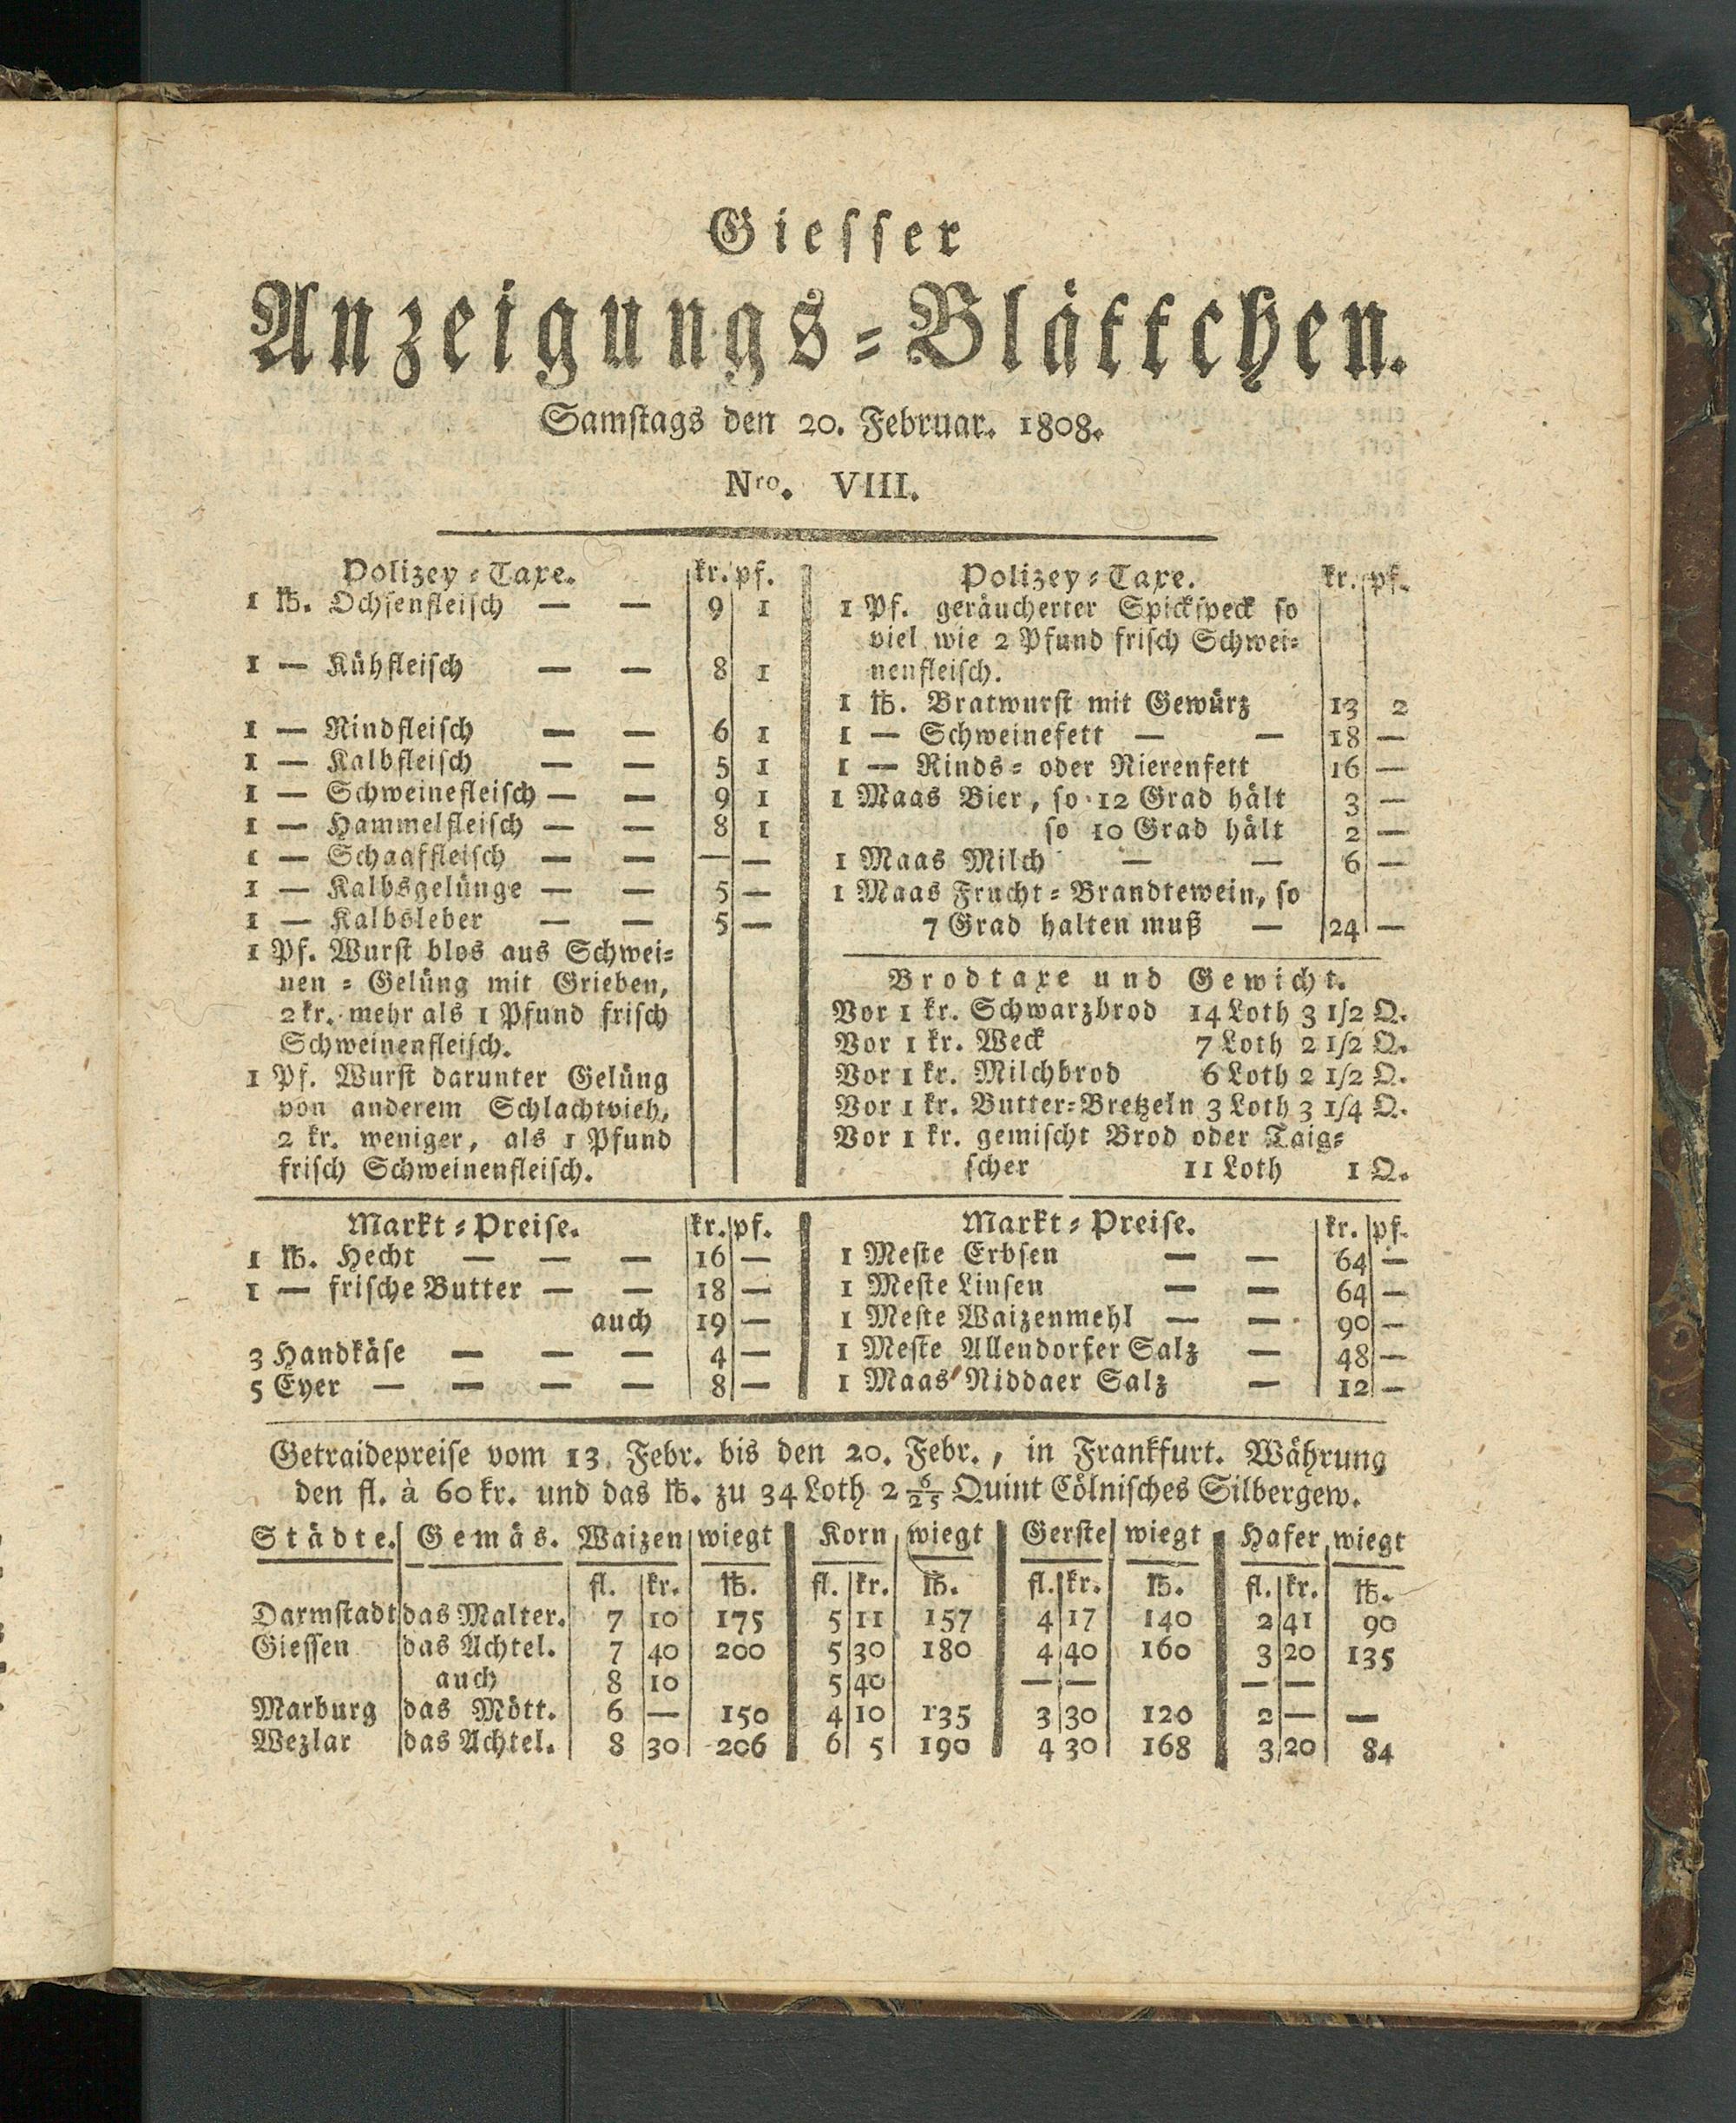 Giesser
Anzeigungs-Blättchen.
Samstags den 20. Februar. 1808.
Nro. VIII.
Polizey-Taxe. kr. pf.
1 ℔. Ochsenfleisch — — 9 1
1 — Kühfleisch — — 8 1
1 — Rindfleisch — — 6 1
1 — Kalbfleisch — — 5 1
1 — Schweinefleisch — — 9 1
1 — Hammelfleisch — — 8 1
1 — Schaaffleisch — — — —
1 — Kalbsgelünge — — 5 —
1 — Kalbsleber — — 5 —
1 Pf. Wurst blos aus Schwei-
nen-Gelüng mit Grieben,
2 kr. mehr als 1 Pfund frisch
Schweinenfleisch.
1 Pf. Wurst darunter Gelüng
von anderem Schlachtvieh,
2 kr. weniger, als 1 Pfund
frisch Schweinenfleisch.
Polizey-Taxe. kr. pf.
1 Pf. geräucherter Spickspeck so
viel wie 2 Pfund frisch Schwei-
nenfleisch.
1 ℔. Bratwurst mit Gewürz 13 2
1 — Schweinefett — — 18 —
1 — Rinds- oder Nierenfett 16 —
1 Maas Bier, so 12 Grad hält 3 —
so 10 Grad hält 2 —
1 Maas Milch — — 6 —
1 Maas Frucht-Brandtewein, so
7 Grad halten muß — 24 —
Brodtaxe und Gewicht.
Vor 1 kr. Schwarzbrod 14 Loth 3 1/2 Q.
Vor 1 kr. Weck 7 Loth 2 1/2 Q.
Vor 1 kr. Milchbrod 6 Loth 2 1/2 Q.
Vor 1 kr. Butter-Bretzeln 3 Loth 3 1/4 Q.
Vor 1 kr. gemischt Brod oder Taig-
scher 11 Loth 1 Q.
Markt-Preise. kr. pf.
1 ℔. Hecht — — — 16 —
1 — frische Butter — — 18 —
auch 19 —
3 Handkäse — — — 4 —
5 Eyer — — — — 8 —
Markt-Preise. kr. pf.
1 Meste Erbsen — — 64 —
1 Meste Linsen — — 64 —
1 Meste Waizenmehl — — 90 —
1 Meste Allendorfer Salz — 48 —
1 Maas Niddaer Salz — 12 —
Getraidepreise vom 13. Febr. bis den 20. Febr., in Frankfurt. Währung
den fl. à 60 kr. und das ℔. zu 34 Loth 2 6/25 Quint Cölnisches Silbergew.
Städte. Gemäs. Waizen wiegt Korn wiegt Gerste wiegt Hafer wiegt
fl. kr. ℔. fl. kr. ℔. fl. kr. ℔. fl. kr. ℔.
Darmstadt das Malter. 7 10 175 5 11 157 4 17 140 2 41 90
Giessen das Achtel. 7 40 200 5 30 180 4 40 160 3 20 135
auch 8 10 5 40 — — — —
Marburg das Mött. 6 — 150 4 10 135 3 30 120 2 — —
Wezlar das Achtel. 8 30 206 6 5 190 4 30 168 3 20 84